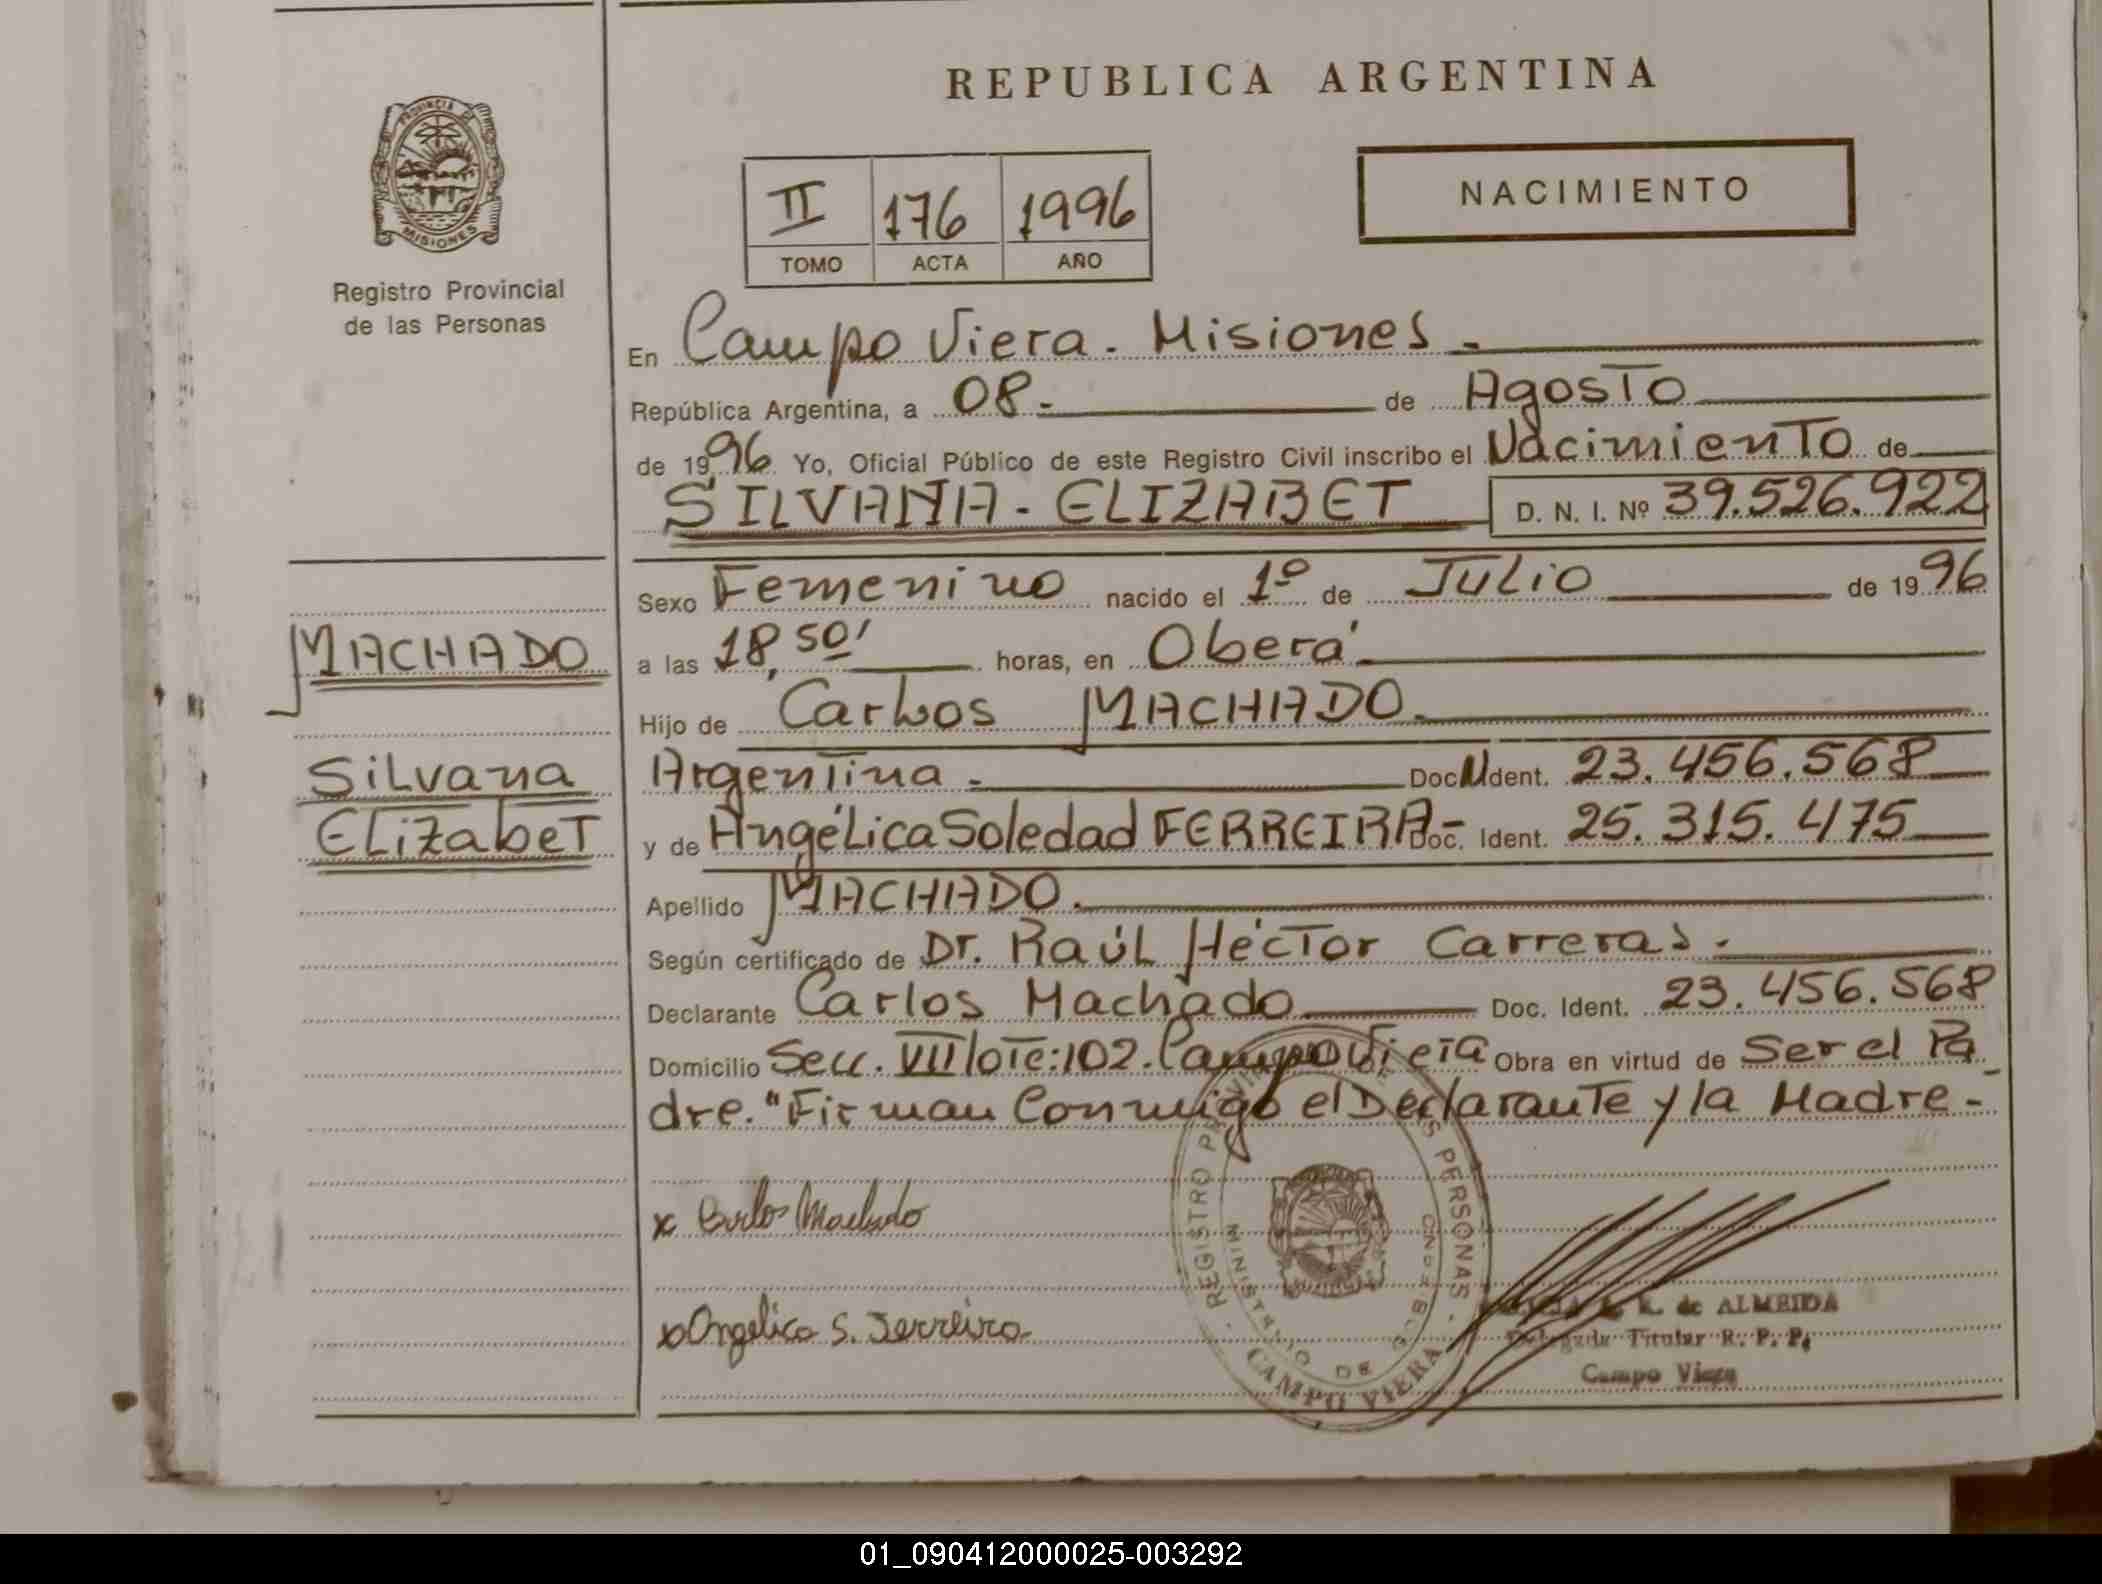 REPUBLICA ARGENTINA
PROVINCIA
MISIONES
Registro Provincial
de las Personas
II 176 1996
TOMO ACTA AÑO
NACIMIENTO
En Campo Viera. Misiones.
República Argentina, a 08. de Agosto
de 1996 Yo, Oficial Público de este Registro Civil inscribo el Nacimiento de
SILVANA - ELIZABET D. N. I. Nº 39.526.922
Sexo Femenino nacido el 1º de Julio de 1996
MACHADO
a las 18,50' horas, en Oberá
Hijo de Carlos MACHADO.
Silvana
Elizabet
Argentina. Doc. Ident. 23.456.568
y de Angélica Soledad FERREIRA- Doc. Ident. 25.315.475
Apellido MACHADO.
Según certificado de Dr. Raúl Héctor Carreras.
Declarante Carlos Machado Doc. Ident. 23.456.568
Domicilio Secc. VII lote:102. Campo Viera Obra en virtud de Ser el Pa
dre. "Firman Conmigo el Declarante y la Madre-
x Carlos Machado
x Angelica S. Ferreira
REGISTRO PROVINCIAL DE LAS PERSONAS
MINISTERIO DE GOBIERNO
CAMPO VIERA
de ALMEIDA
Delegada Titular R. P. P.
Campo Viera
01_090412000025-003292